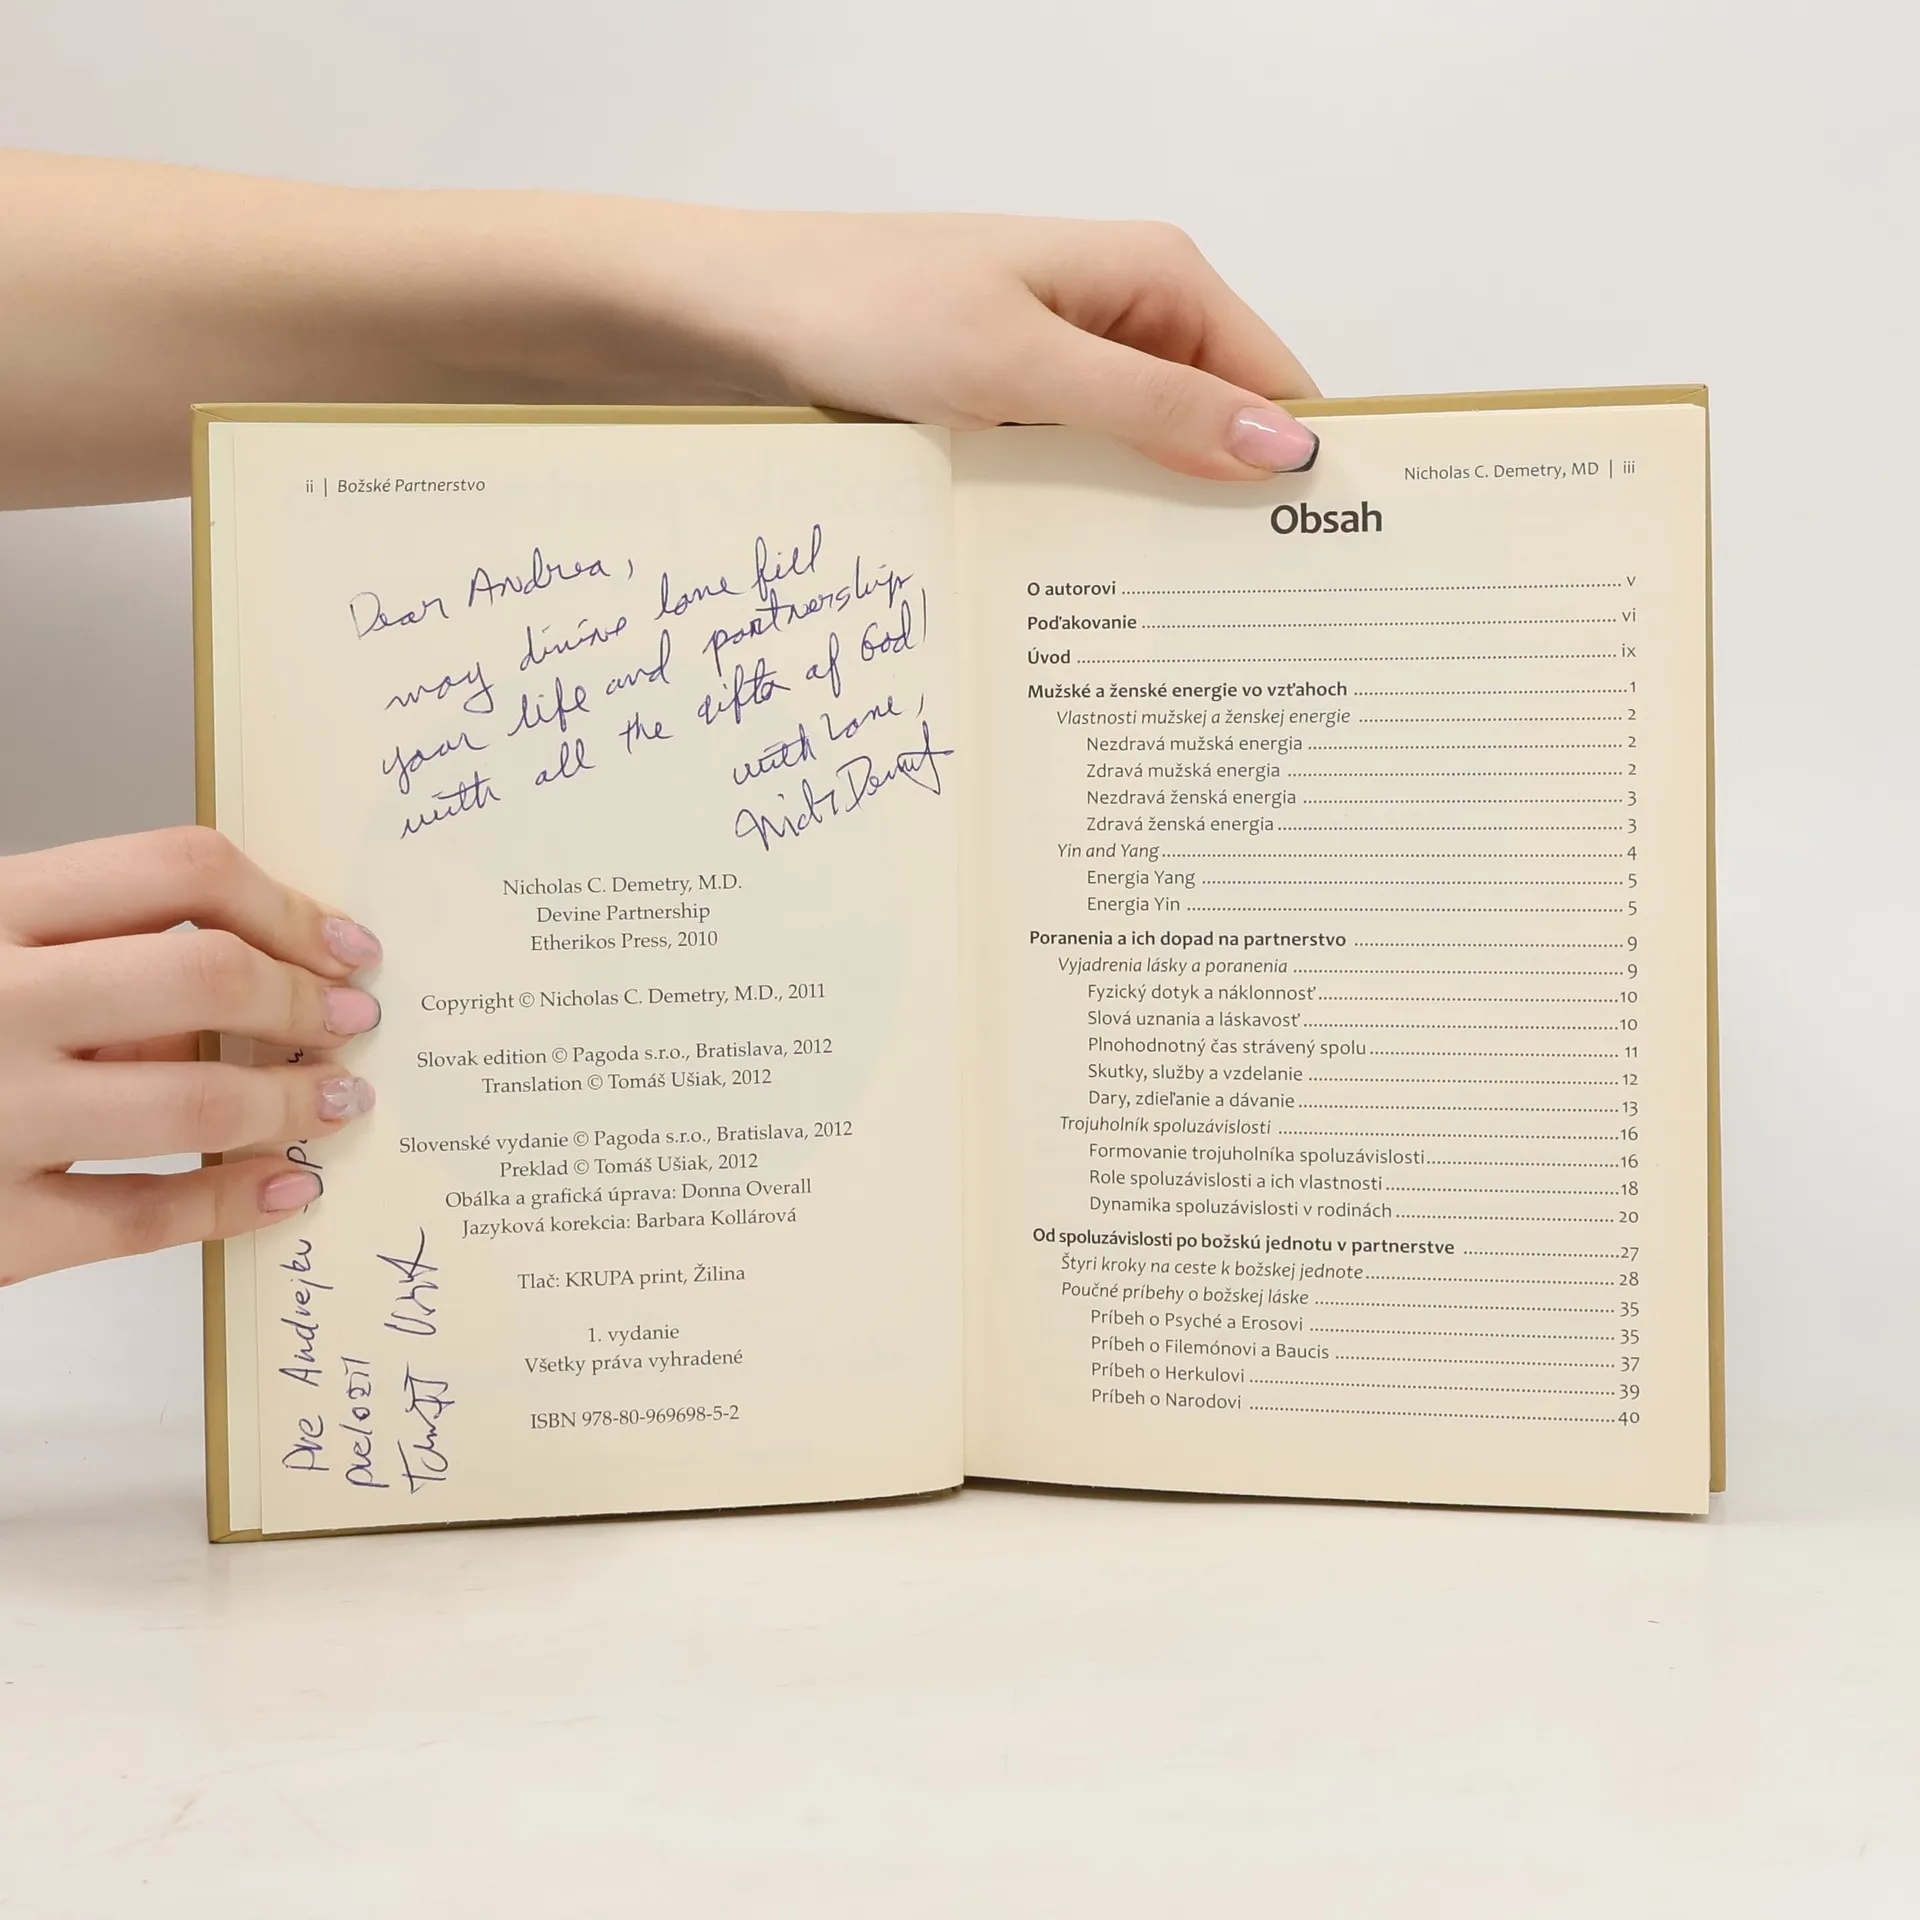 ii | Božské Partnerstvo
Dear Andrea,
may divine love fill
your life and partnership
with all the gifts of God!
with Love,
Nick Demetry
Nicholas C. Demetry, M.D.
Devine Partnership
Etherikos Press, 2010
Copyright © Nicholas C. Demetry, M.D., 2011
Slovak edition © Pagoda s.r.o., Bratislava, 2012
Translation © Tomáš Ušiak, 2012
Slovenské vydanie © Pagoda s.r.o., Bratislava, 2012
Preklad © Tomáš Ušiak, 2012
Obálka a grafická úprava: Donna Overall
Jazyková korekcia: Barbara Kollárová
Tlač: KRUPA print, Žilina
1. vydanie
Všetky práva vyhradené
ISBN 978-80-969698-5-2
Pre Andrejku
preložil
Tomáš Ušiak
Nicholas C. Demetry, MD | iii
Obsah
O autorovi ........ v
Poďakovanie ........ vi
Úvod ........ ix
Mužské a ženské energie vo vzťahoch ........ 1
Vlastnosti mužskej a ženskej energie ........ 2
Nezdravá mužská energia ........ 2
Zdravá mužská energia ........ 2
Nezdravá ženská energia ........ 3
Zdravá ženská energia ........ 3
Yin and Yang ........ 4
Energia Yang ........ 5
Energia Yin ........ 5
Poranenia a ich dopad na partnerstvo ........ 9
Vyjadrenia lásky a poranenia ........ 9
Fyzický dotyk a náklonnosť ........ 10
Slová uznania a láskavosť ........ 10
Plnohodnotný čas strávený spolu ........ 11
Skutky, služby a vzdelanie ........ 12
Dary, zdieľanie a dávanie ........ 13
Trojuholník spoluzávislosti ........ 16
Formovanie trojuholníka spoluzávislosti ........ 16
Role spoluzávislosti a ich vlastnosti ........ 18
Dynamika spoluzávislosti v rodinách ........ 20
Od spoluzávislosti po božskú jednotu v partnerstve ........ 27
Štyri kroky na ceste k božskej jednote ........ 28
Poučné príbehy o božskej láske ........ 35
Príbeh o Psyché a Erosovi ........ 35
Príbeh o Filemónovi a Baucis ........ 37
Príbeh o Herkulovi ........ 39
Príbeh o Narodovi ........ 40